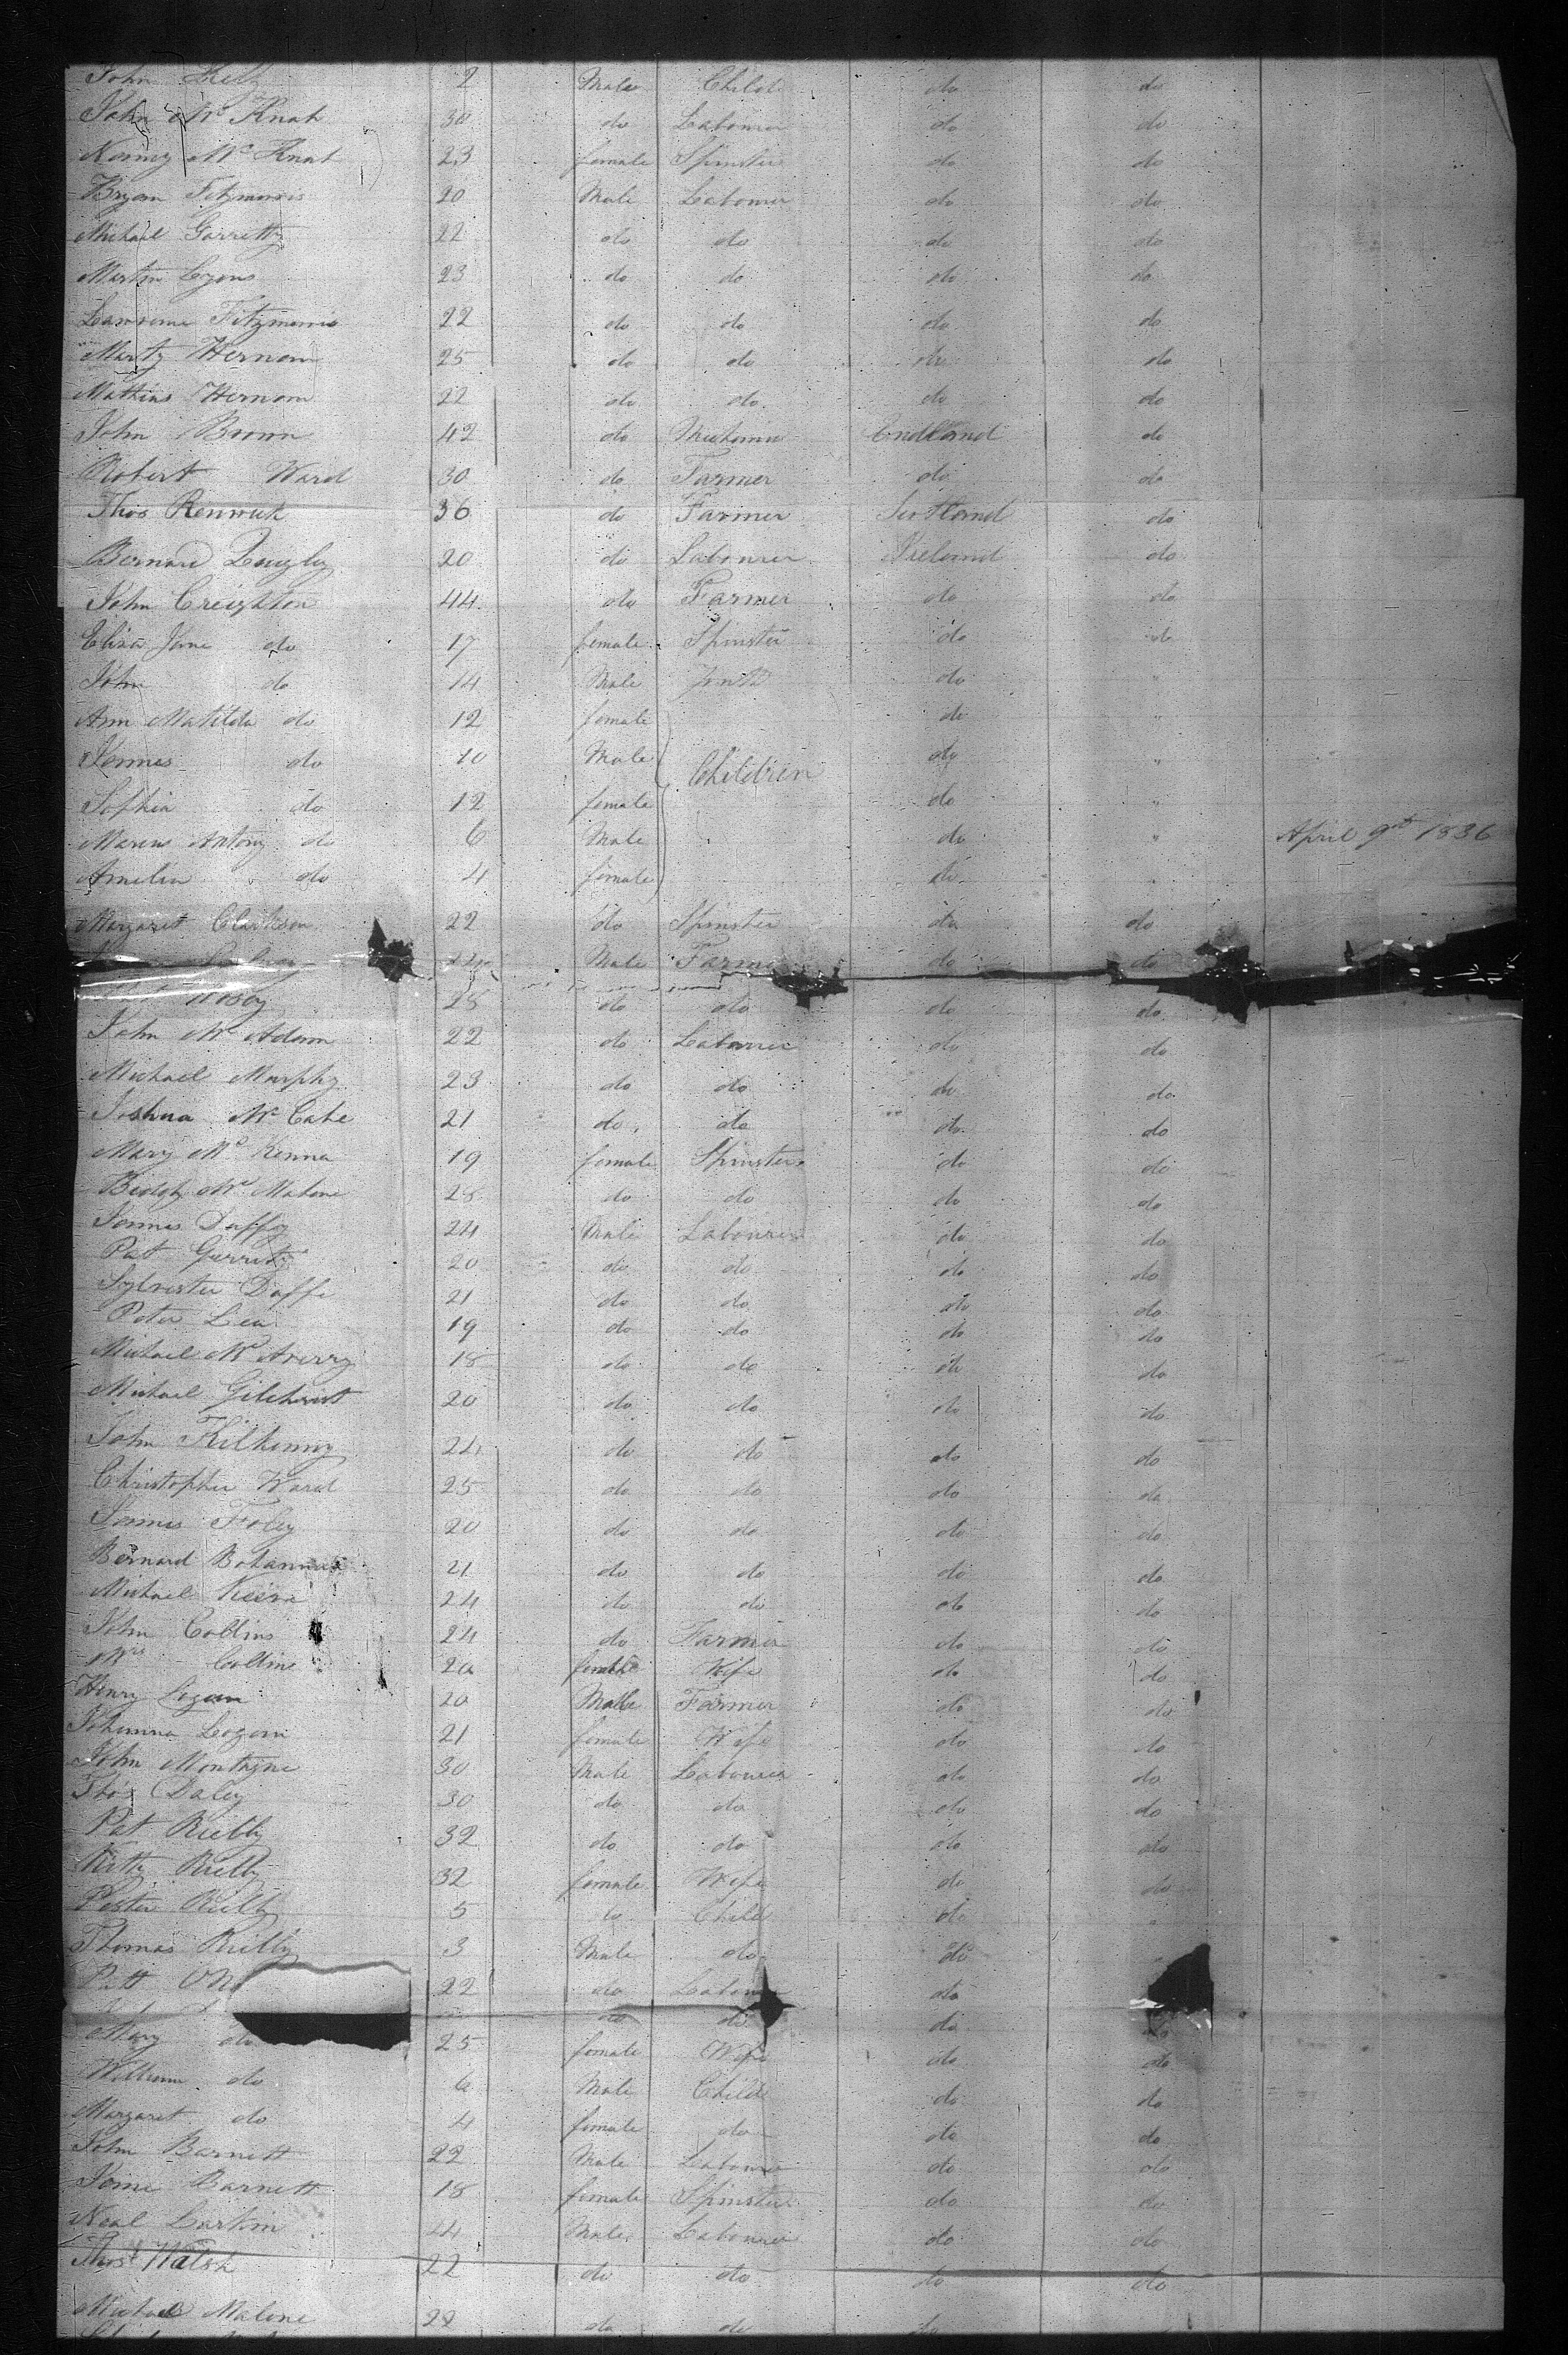 John 2 Male Child do do
John Mc Knab 30 do Labourer do do
Nancy Mc Knab 23 female Spinster do do
Bryan Fitzmorris 20 Male Labourer do do
Michael Garretty 22 do do do do
Martin Lyons 23 do do do do
Lawrence Fitzmorris 22 do do do do
Marty Hernon 25 do do do do
Mathias Hernon 22 do do do do
John Brown 42 do do
Robert Ward 30 do Farmer do do
Thos Renwick 36 do Farmer Scotland do
Bernard 20 do Labourer Ireland do
John Creighton 44 do Farmer do do
Eliza Jane do 17 female Spinster do do
John do 14 Male do "
Ann Matilda do 12 female do "
James do 10 Male Children do "
Sophia do 12 female do "
Antony do 6 Male do " April 9th 1836
Amelia do 4 female do "
Margaret Clarkson 22 do Spinster do do
24 Male Farmer do do
28 do do do do
John Mc Adam 22 do Labourer do do
Michael Murphy 23 do do do do
Joshua Mc Cabe 21 do do do do
Mary Mc Kenna 19 female Spinster do do
Biddy Mc Mahone 28 do do do do
James Duffy 24 Male Labourer do do
Pat Garrity 20 do do do do
Sylvester Duffe 21 do do do do
Peter Lea 19 do do do do
Michael 18 do do do do
Michael Gilchrist 20 do do do do
John Kilkenny 24 do do do do
Christopher Ward 25 do do do do
James Foley 20 do do do do
Bernard 21 do do do do
Michael 24 do do do do
John Collins 24 do Farmer do do
Mrs Collins 20 female Wife do do
Henry Logan 20 Male Farmer do do
Johanna Logan 21 female Wife do do
John Montague 30 Male Labourer do do
Thos Daley 30 do do do do
Pat Rielly 32 do do do do
Kitty Rielly 32 female Wife do do
Rielly 5 do Child do "
Thomas Rielly 3 Male do do "
Patt 22 do Labourer do
do do do do
Mary do 25 female Wife do do
William do 6 Male Child do do
Margaret do 4 female do do do
John Barnett 22 Male Labourer do do
Jane Barnett 18 female Spinster do do
Neal Larkin 44 Male Labourer do do
Thos Walsh 22 do do do do
Michael Malone 22 do do do